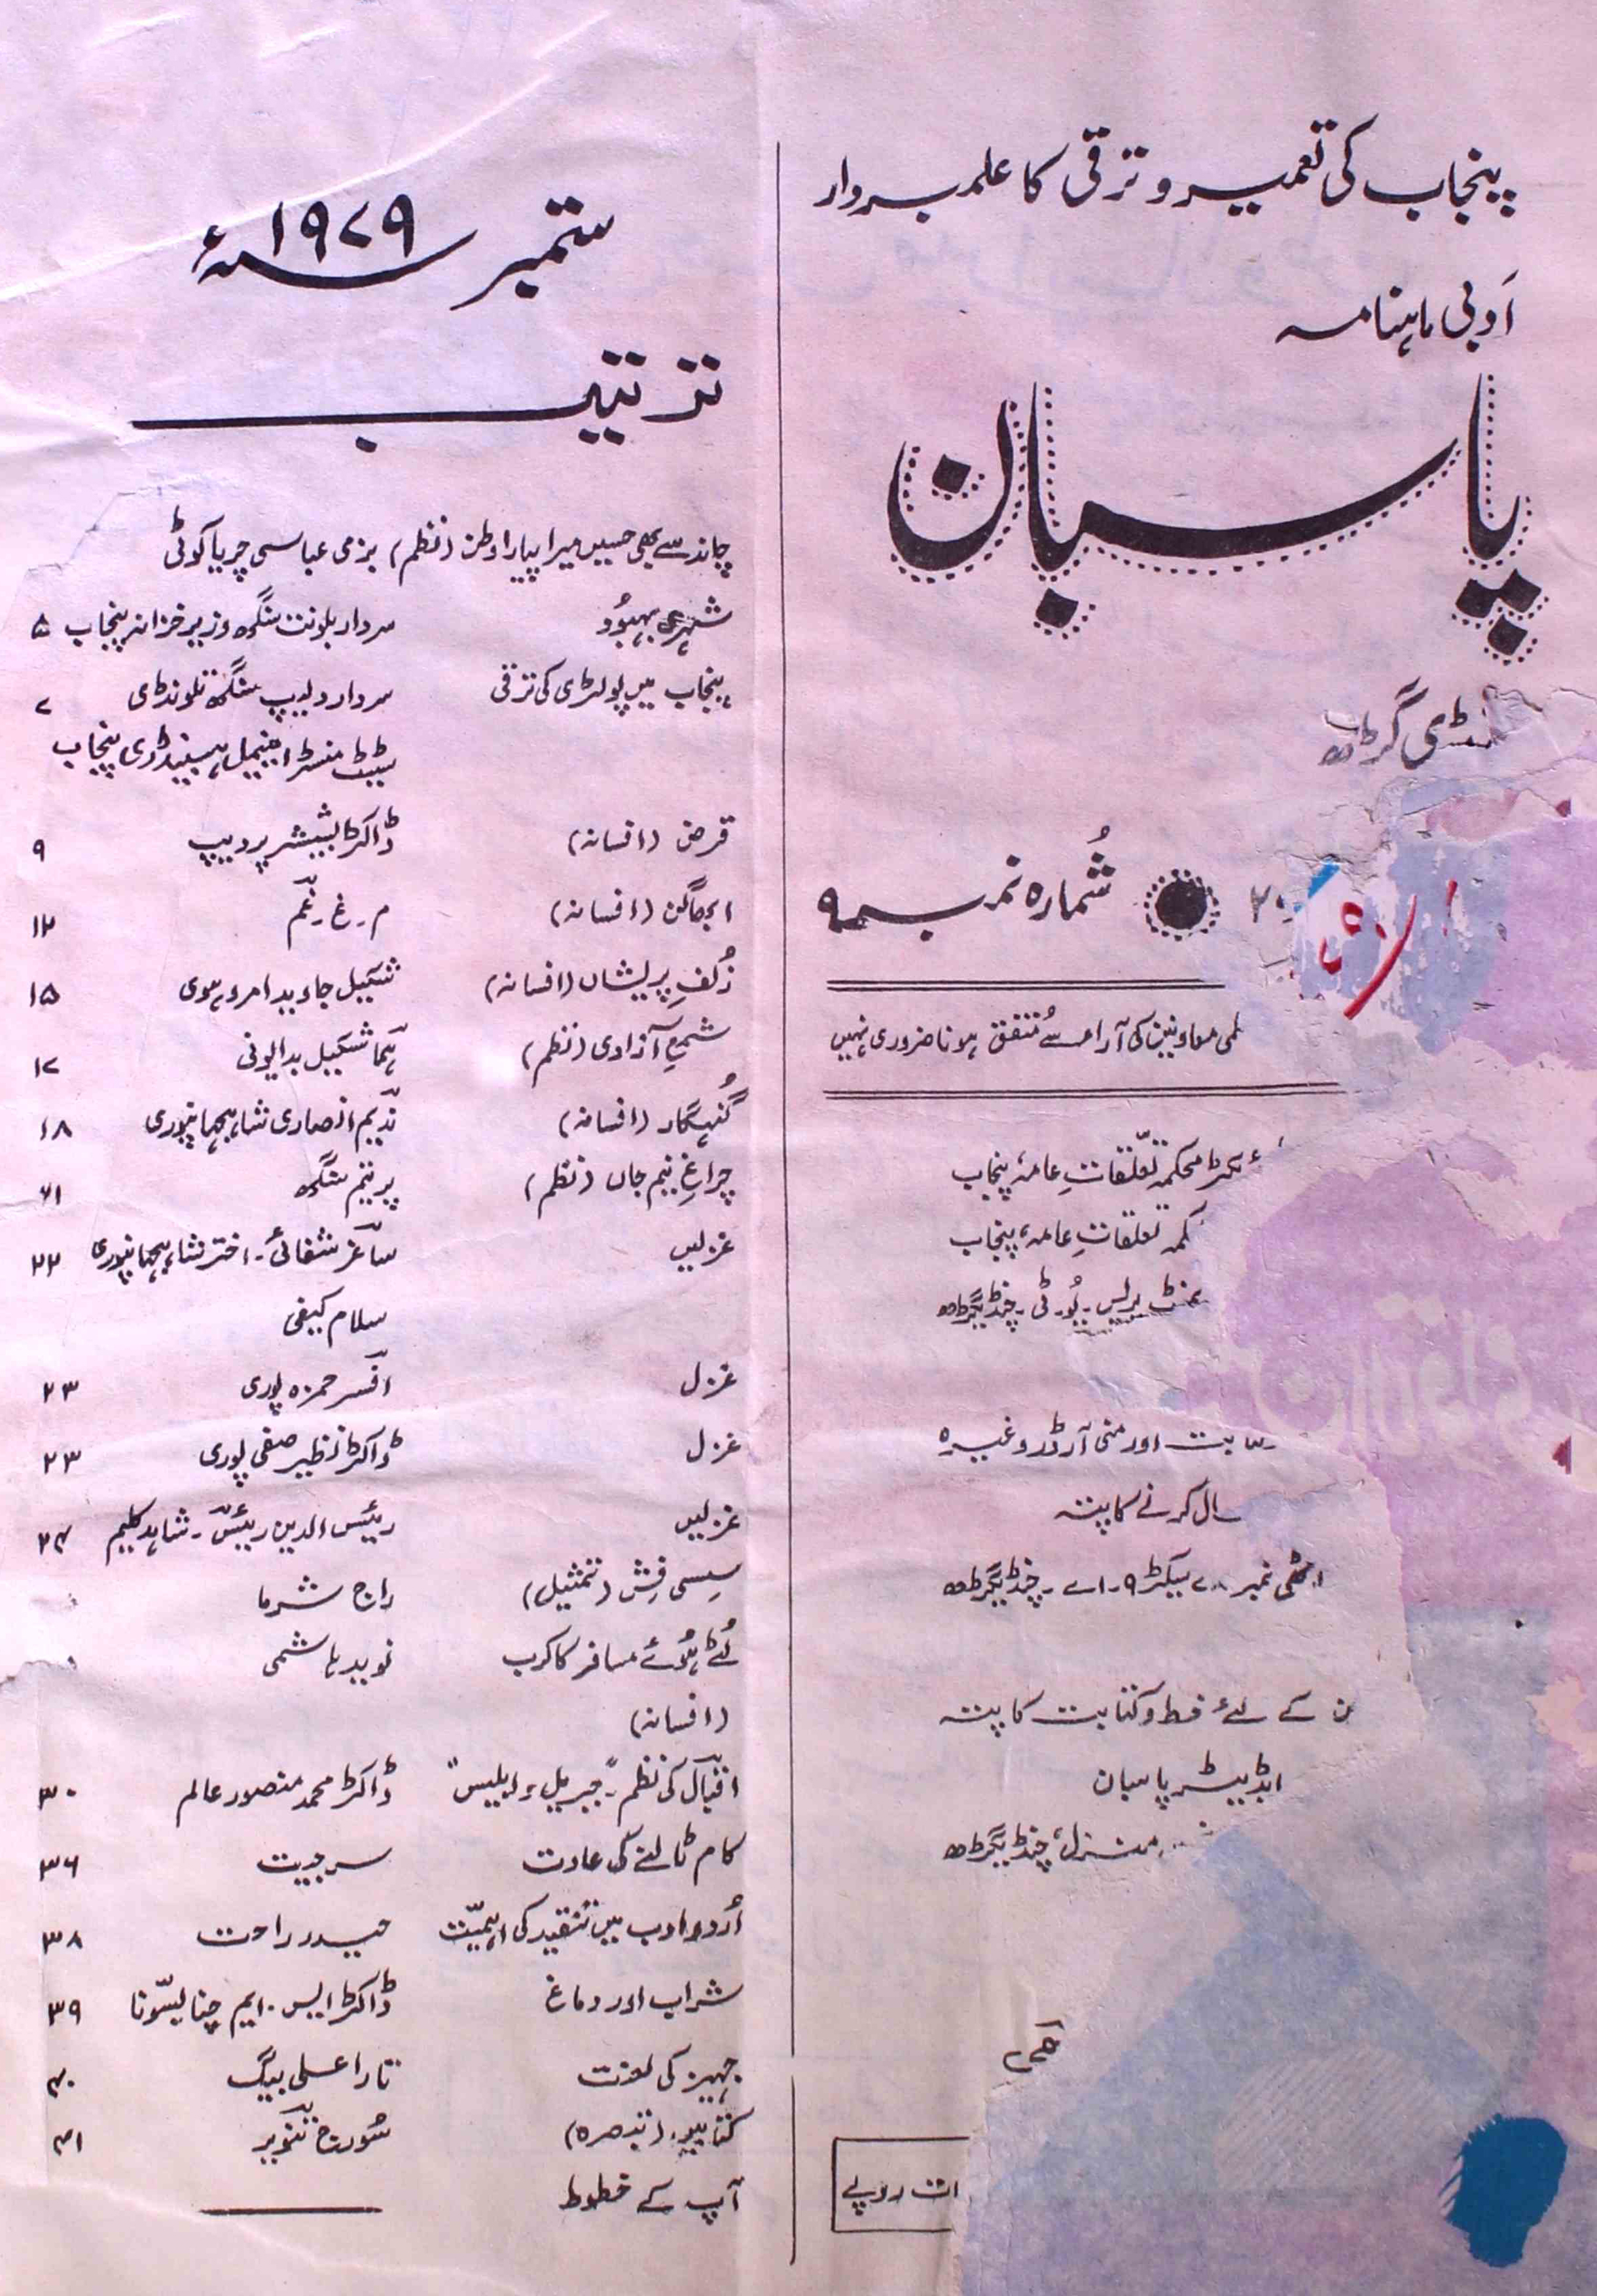 پنجاب کی تعمیر و ترقی کا علمبردار
اَدبی ماہنامہ
پاسبان
نڈی گڑھ
شُمارہ نمبر ۹
لمی معاونین کی آراء سے مُتفق ہونا ضروری نہیں
محکمہ تعلّقاتِ عامہ پنجاب
تعلقاتِ عامہ، پنجاب
پریس۔ یُو۔ ٹی۔ چنڈیگڑھ
اور منی آرڈر وغیرہ
کرنے کا پتہ
سیکٹر ۹۔اے۔ چنڈیگڑھ
کے لئے خط و کتابت کا پتہ
ایڈیٹر پاسبان
منزل، چنڈیگڑھ
روپے
ستمبر ۱۹۷۹ء
ترتیب
چاند سے بھی حسیں میرا پیارا وطن (نظم) بزمی عباسی چریاکوٹی
شہری بہبُود سردار بلونت سنگھ وزیر خزانہ پنجاب ۵
پنجاب میں پولٹری کی ترقی سردار دلیپ سنگھ تلونڈی ۷
سٹیٹ منسٹر اینیمل ہسبینڈری پنجاب
قرض (افسانہ) ڈاکٹر بشیشر پردیپ ۹
ابھاگن (افسانہ) م۔غ۔غم ۱۲
زُلفِ پریشاں (افسانہ) شکیل جاوید امروہوی ۱۵
شمعِ آزادی (نظم) ہما شکیل بدایونی ۱۷
گُنہگار (افسانہ) ندیم انصاری شاہجہانپوری ۱۸
چراغِ نیم جاں (نظم) پریتم سنگھ ۲۱
غزلیں ساغر شفائی۔ اختر شاہجہانپوری ۲۲
سلام کیفی
غزل افسر حمزہ پوری ۲۳
غزل ڈاکٹر نظیر صفی پوری ۲۳
غزلیں رئیس الدین رئیس۔ شاہد کلیم ۲۴
سِسی فِش (تمثیل) راج شرما
لُٹے ہُوئے مسافر کا کرب نوید ہاشمی
(افسانہ)
اقبال کی نظم۔ "جبریل و ابلیس" ڈاکٹر محمد منصور عالم ۳۰
کام ٹالنے کی عادت سرجیت ۳۶
اُردو ادب میں تنقید کی اہمیّت حیدر راحت ۳۸
شراب اور دماغ ڈاکٹر ایس۔ایم چنالیسونا ۳۹
جہیز کی لعنت تارا علی بیگ ۴۰
کتابیں (تبصرہ) سُورج تنویر ۴۱
آپ کے خطوط